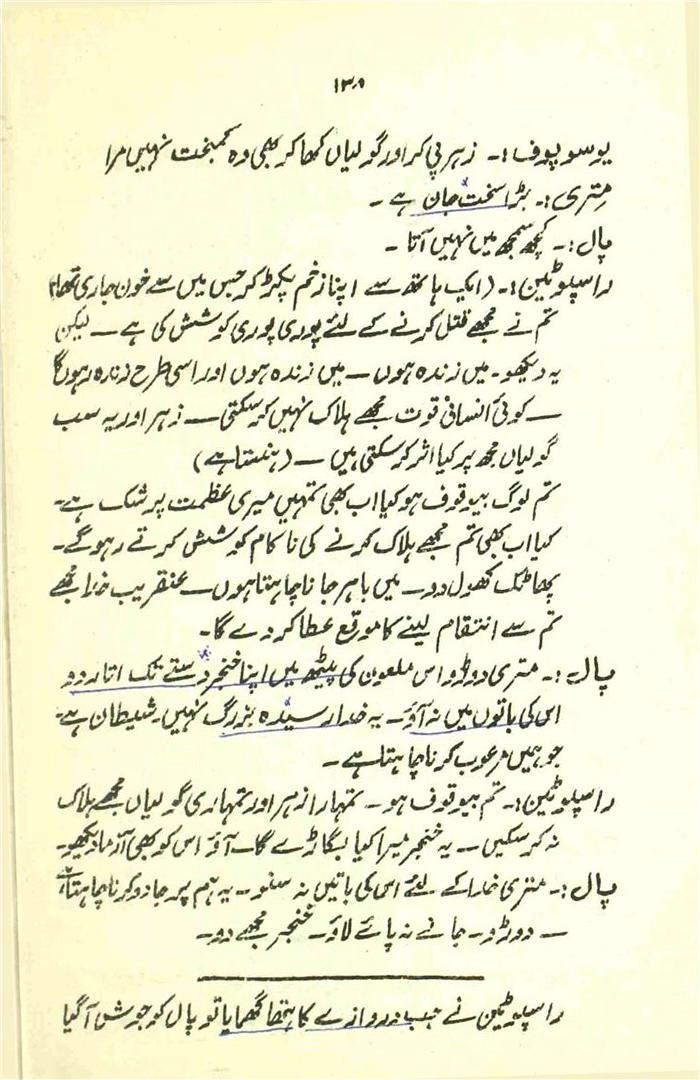 ۱۳۹
یوسوپوف :۔ زہر پی کر اور گولیاں کھا کر بھی وہ کمبخت نہیں مرا
متری :۔ بڑا سخت جان ہے ۔
پال :۔ کچھ سمجھ میں نہیں آتا ۔
راسپوٹین :۔ (ایک ہاتھ سے اپنا زخم پکڑ کر جس میں سے خون جاری تھا)
تم نے مجھے قتل کرنے کے لئے پوری پوری کوشش کی ہے — لیکن
یہ دیکھو۔ میں زندہ ہوں — میں زندہ ہوں اور اسی طرح زندہ رہوں گا
— کوئی انسانی قوت مجھے ہلاک نہیں کر سکتی — زہر اور یہ سب
گولیاں مجھ پر کیا اثر کر سکتی ہیں — (ہنستا ہے)
تم لوگ بیوقوف ہو کیا اب بھی تمہیں میری عظمت پر شک ہے۔
کیا اب بھی تم مجھے ہلاک کرنے کی ناکام کوشش کرتے رہو گے۔
پھاٹک کھول دو— میں باہر جانا چاہتا ہوں— عنقریب خدا مجھے
تم سے انتقام لینے کا موقع عطا کر دے گا۔
پال :۔ متری دوڑو اس ملعون کی پیٹھ میں اپنا خنجر دستے تک اتار دو
اس کی باتوں میں نہ آؤ۔ یہ خدا رسیدہ بزرگ نہیں۔ شیطان ہے۔
جو ہمیں مرعوب کرنا چاہتا ہے ۔
راسپوٹین :۔ تم بیوقوف ہو۔ تمہارا زہر اور تمہاری گولیاں مجھے ہلاک
نہ کر سکیں — یہ خنجر میرا کیا بگاڑے گا— آؤ اس کو بھی آزما دیکھو۔
پال :۔ متری خدا کے لئے اس کی باتیں نہ سنو۔ یہ ہم پر جادو کرنا چاہتا ہے
— دوڑو۔ جانے نہ پائے لاؤ۔ خنجر مجھے دو۔
راسپوٹین نے جب دروازے کا ہتھا گھمایا تو پال کو جوش آگیا